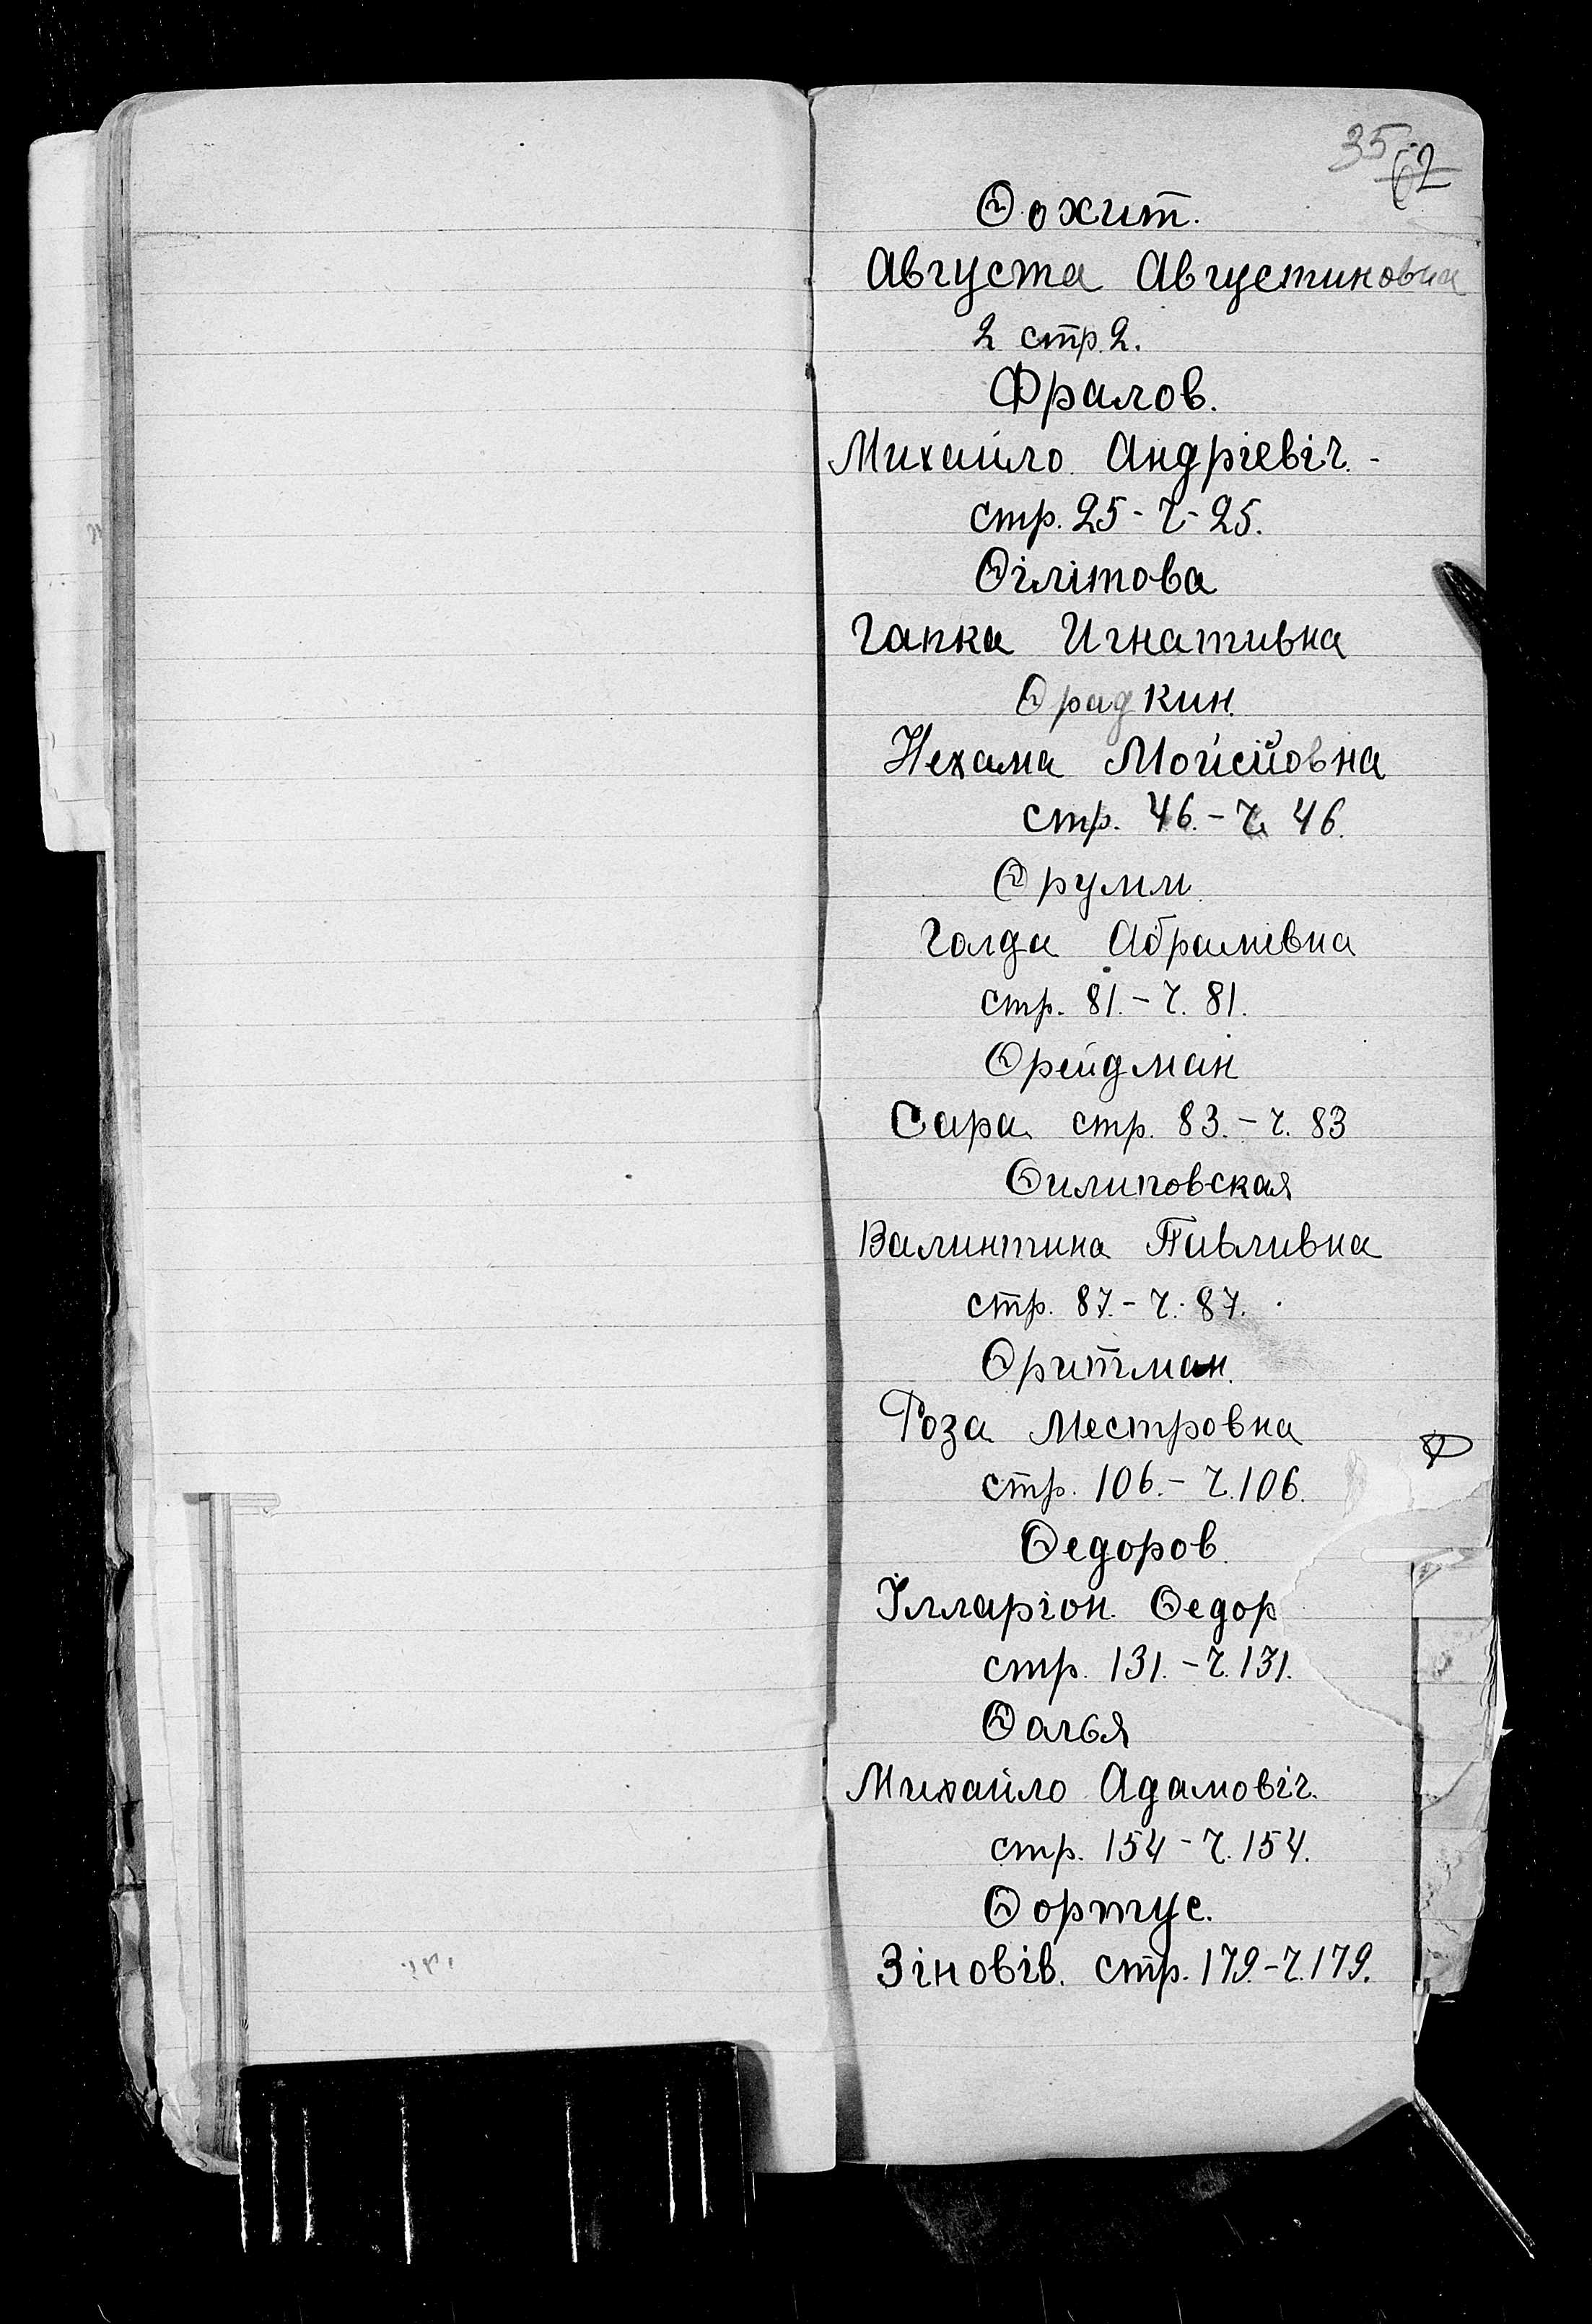 35
62
Фохит.
Августа Августиновна
2 стр. 2.
Фралов.
Михайло Андріевіч. -
стр. 25 - ч - 25.
Філітова
Гапка Игнативна
Фрадкин.
Нехама Мойсійовна
стр. 46. - ч. 46.
Фрумм.
Голда Абрамівна
стр. 81. - ч. 81.
Фрейдман
Сара стр. 83. - ч. 83
Филиповская
Валинтина Павливна
стр. 87. - ч. 87.
Фритман.
Роза Местровна
стр. 106. - ч. 106.
Ф
Федоров.
Ілларіон Федор
стр. 131. - ч. 131.
Фалья
Михайло Адамовіч.
стр. 154 - ч. 154.
Фортус.
Зіновів. стр. 179. - ч. 179.